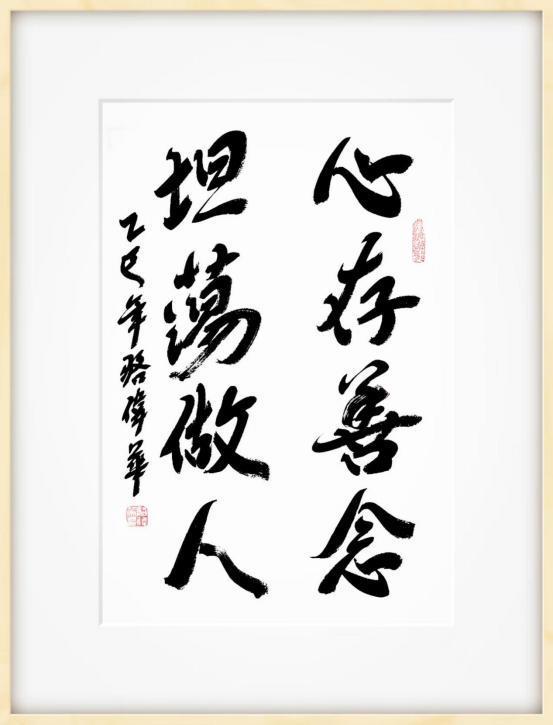 心存善念
坦蕩做人
乙巳年骆偉華